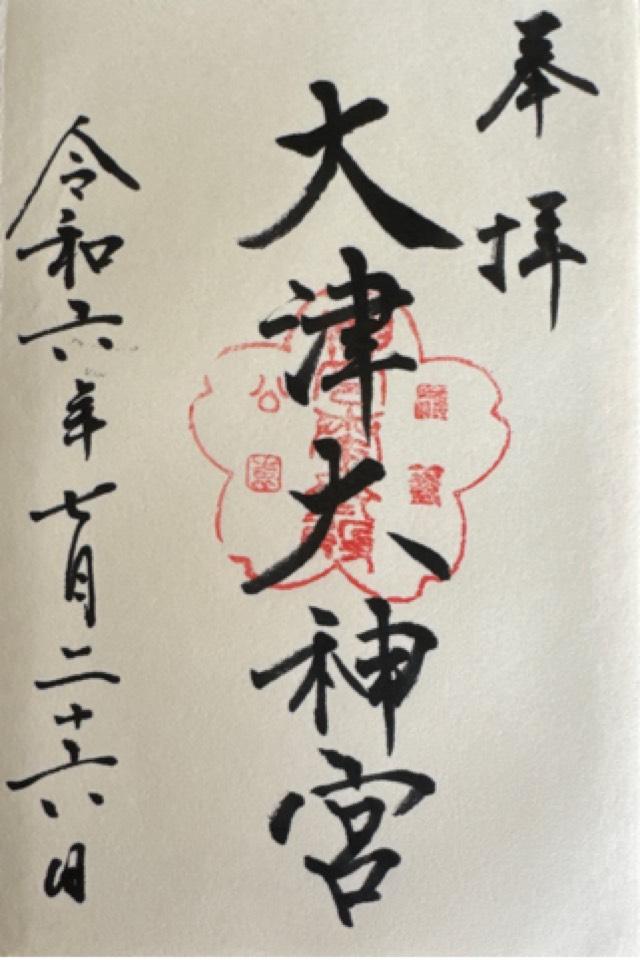 奉拝
大津大神宮
令和六年七月二十六日